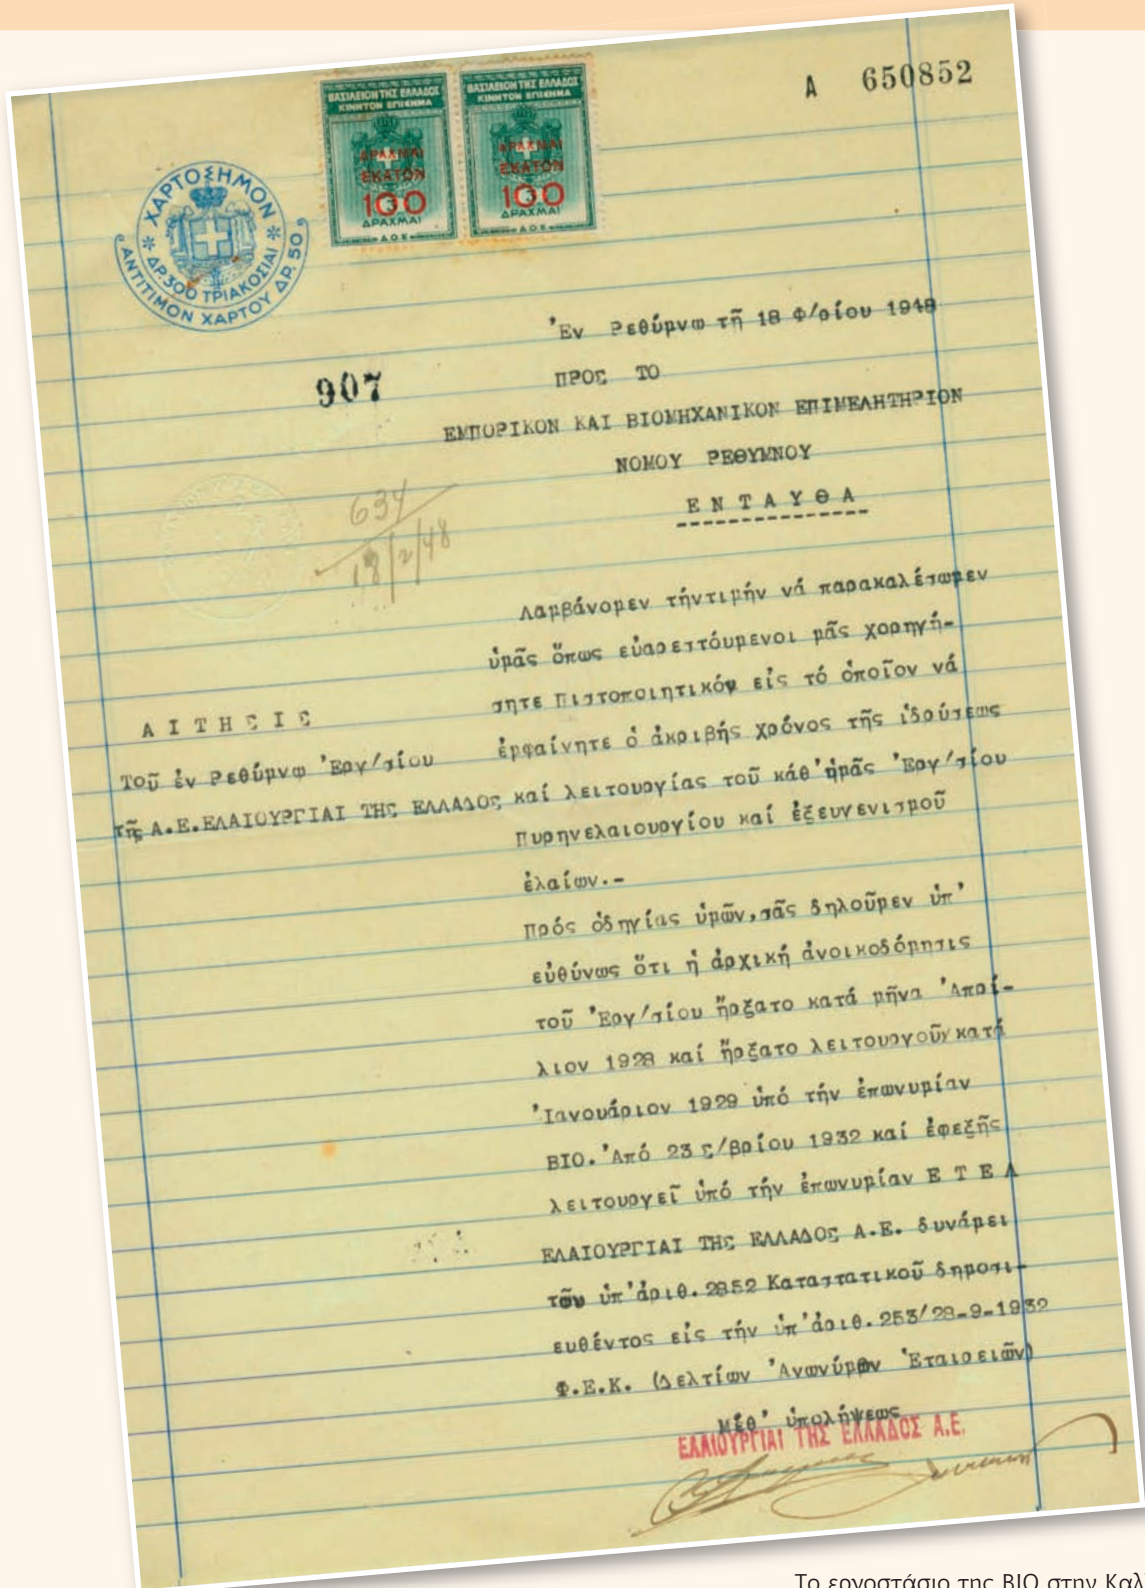 Α 650852
ΒΑΣΙΛΕΙΟΝ ΤΗΣ ΕΛΛΑΔΟΣ
ΚΙΝΗΤΟΝ ΕΠΙΣΗΜΑ
ΔΡΑΧΜΑΙ
ΕΚΑΤΟΝ
100
ΔΡΑΧΜΑΙ
Δ.Ο.Ε
ΒΑΣΙΛΕΙΟΝ ΤΗΣ ΕΛΛΑΔΟΣ
ΚΙΝΗΤΟΝ ΕΠΙΣΗΜΑ
ΔΡΑΧΜΑΙ
ΕΚΑΤΟΝ
100
ΔΡΑΧΜΑΙ
Δ.Ο.Ε
ΧΑΡΤΟΣΗΜΟΝ
ΔΡ. 300 ΤΡΙΑΚΟΣΙΑΙ
ΑΝΤΙΤΙΜΟΝ ΧΑΡΤΟΥ ΔΡ. 50
Ἐν Ρεθύμνω τῆ 18 Φ/ρίου 1948
907
ΠΡΟΣ ΤΟ
ΕΜΠΟΡΙΚΟΝ ΚΑΙ ΒΙΟΜΗΧΑΝΙΚΟΝ ΕΠΙΜΕΛΗΤΗΡΙΟΝ
ΝΟΜΟΥ ΡΕΘΥΜΝΟΥ
Ε Ν Τ Α Υ Θ Α
634
18/2/48
Α Ι Τ Η Σ Ι Σ
Τοῦ ἐν Ρεθύμνω Ἐργ/σίου
τῆς Α.Ε.ΕΛΑΙΟΥΡΓΙΑΙ ΤΗΣ ΕΛΛΑΔΟΣ
Λαμβάνομεν τήντιμήν νά παρακαλέσωμεν
ὑμᾶς ὅπως εὐαρεστόυμενοι μᾶς χορηγή-
σητε Πιστοποιητικόν εἰς τό ὁποῖον νά
ἐμφαίνητε ὁ ἀκριβής χρόνος τῆς ἱδρύσεως
καί λειτουργίας τοῦ κάθ'ἡμᾶς Ἐργ/σίου
Πυρηνελαιουργίου καί ἐξευγενισμοῦ
ἐλαίων.-
Πρός ὁδηγίας ὑμῶν,σᾶς δηλοῦμεν ὑπ'
εὐθύνως ὅτι ἡ ἀρχική ἀνοικοδόμησις
τοῦ Ἐργ/σίου ἤρξατο κατά μῆνα Ἀπρί-
λιον 1928 καί ἤρξατο λειτουργοῦν κατά
Ἰανουάριον 1929 ὑπό τήν ἐπωνυμίαν
ΒΙΟ. Ἀπό 23 Σ/βρίου 1932 καί ἐφεξῆς
λειτουργεῖ ὑπό τήν ἐπωνυμίαν Ε Τ Ε Λ
ΕΛΑΙΟΥΡΓΙΑΙ ΤΗΣ ΕΛΛΑΔΟΣ Α.Ε. δυνάμει
τῶν ὑπ'ἀριθ.2852 Καταστατικοῦ δημοσι-
ευθέντος εἰς τήν ὑπ'ἀριθ.253/28-9-1932
Φ.Ε.Κ. (Δελτίων Ἀνωνύμων Ἑταιρειῶν)
Μέθ' ὑπολήψεως
ΕΛΑΙΟΥΡΓΙΑΙ ΤΗΣ ΕΛΛΑΔΟΣ Α.Ε.
Το εργοστάσιο της ΒΙΟ στην Καλ